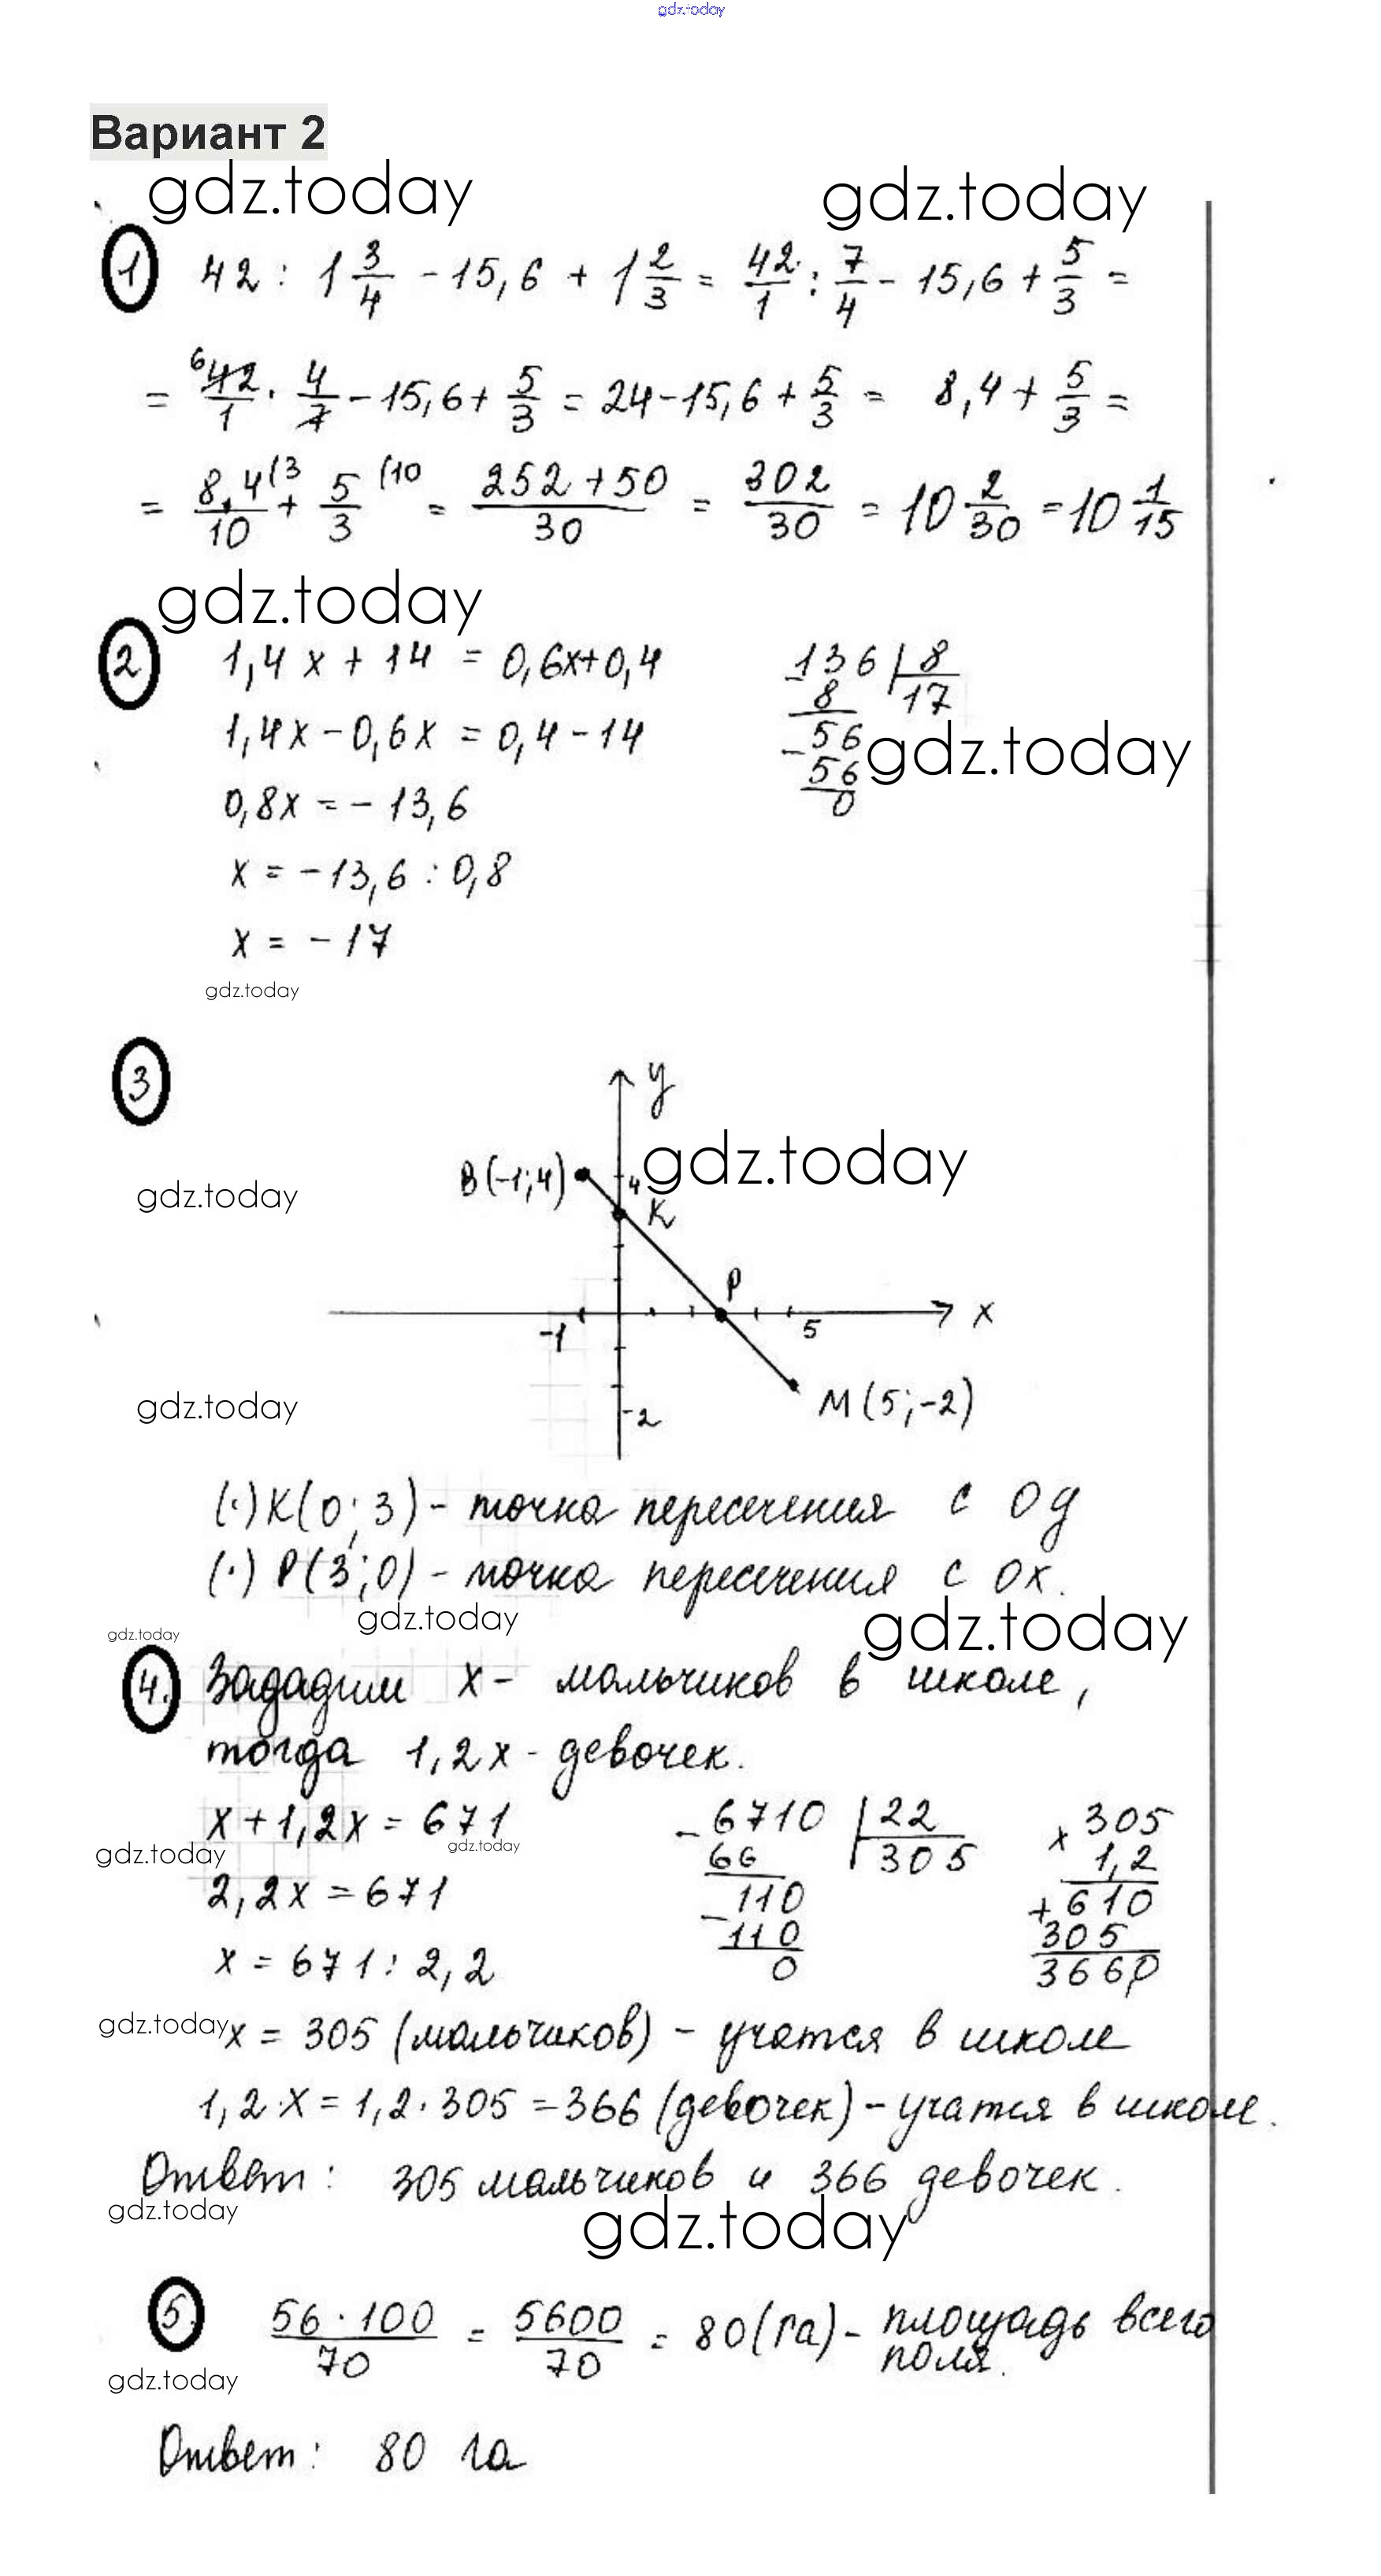 gdz.today
Вариант 2
gdz.today gdz.today
1 42 : 1 3/4 - 15,6 + 1 2/3 = 42/1 : 7/4 - 15,6 + 5/3 =
= 6 42/1 · 4/7 - 15,6 + 5/3 = 24 - 15,6 + 5/3 = 8,4 + 5/3 =
= 8,4(3/10 + 5/3 (10 = 252+50/30 = 302/30 = 10 2/30 = 10 1/15
gdz.today
2 1,4x + 14 = 0,6x+0,4 136 | 8
8 17
1,4x - 0,6x = 0,4 - 14 - 56 gdz.today
56
0,8x = - 13,6 0
x = - 13,6 : 0,8
x = - 17
gdz.today
3
y
gdz.today
B(-1;4) 4
gdz.today K
P
x
-1 5
gdz.today
M(5;-2)
-2
(·)K(0;3) - точка пересечения с Oy
(·) P(3;0) - точка пересечения с Ox.
gdz.today gdz.today
gdz.today
4. Зададим x - мальчиков в школе,
тогда 1,2x - девочек.
x + 1,2x = 671 - 6710 | 22 x 305
gdz.today gdz.today 66 305 1,2
2,2x = 671 110 + 610
- 110 305
x = 671 : 2,2 0 366,0
gdz.today x = 305 (мальчиков) - учатся в школе
1,2·x = 1,2·305 = 366 (девочек) - учатся в школе.
Ответ: 305 мальчиков и 366 девочек.
gdz.today gdz.today
5. 56·100/70 = 5600/70 = 80(га) - площадь всего
поля.
gdz.today
Ответ: 80 га